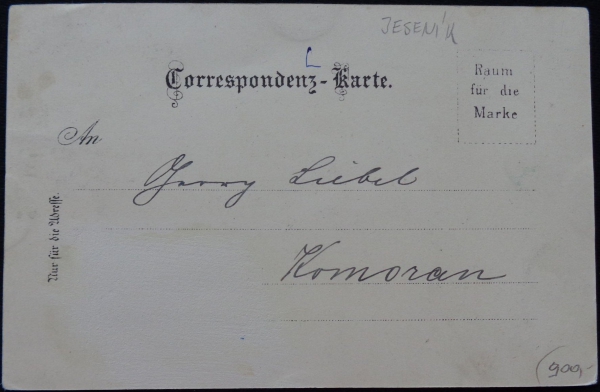 JESENÍK
L
Correspondenz-Karte.
Raum
für die
Marke
An
Georg Liebel
Komoran
Nur für die Adresse.
900,-